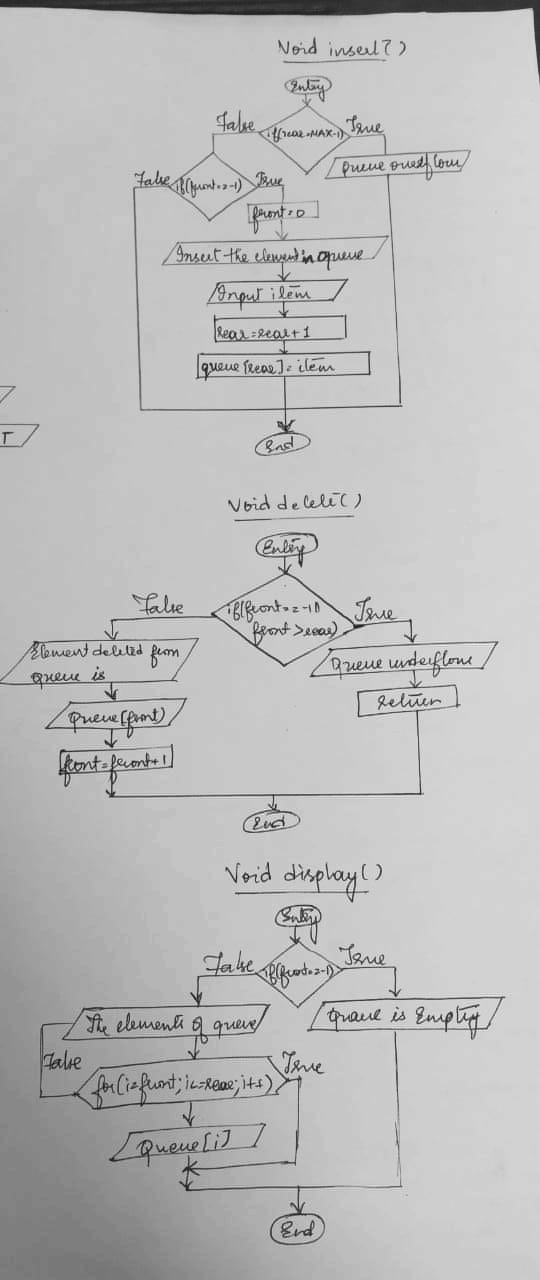 Void insert()
Entry
False
if(rear=MAX-1)
True
Queue overflow
False
if(front==-1)
True
front=0
Insert the element in queue
Input item
rear=rear+1
queue[rear]=item
End
T
Void delete()
Entry
False
if(front==-1||
front>rear)
True
Element deleted from
queue is
Queue underflow
Queue(front)
Return
front=front+1
End
Void display()
Entry
False
if(front==-1)
True
The elements of queue
Queue is Empty
False
for(i=front;i<=rear;i++)
True
Queue[i]
End